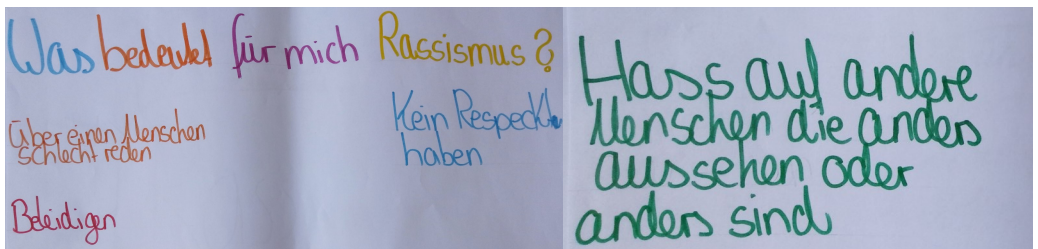 Was bedeutet für mich Rassismus?
Über einen Menschen
schlecht reden
Beleidigen
Kein Respeckte
haben
Hass auf andere
Menschen die anders
aussehen oder
anders sind